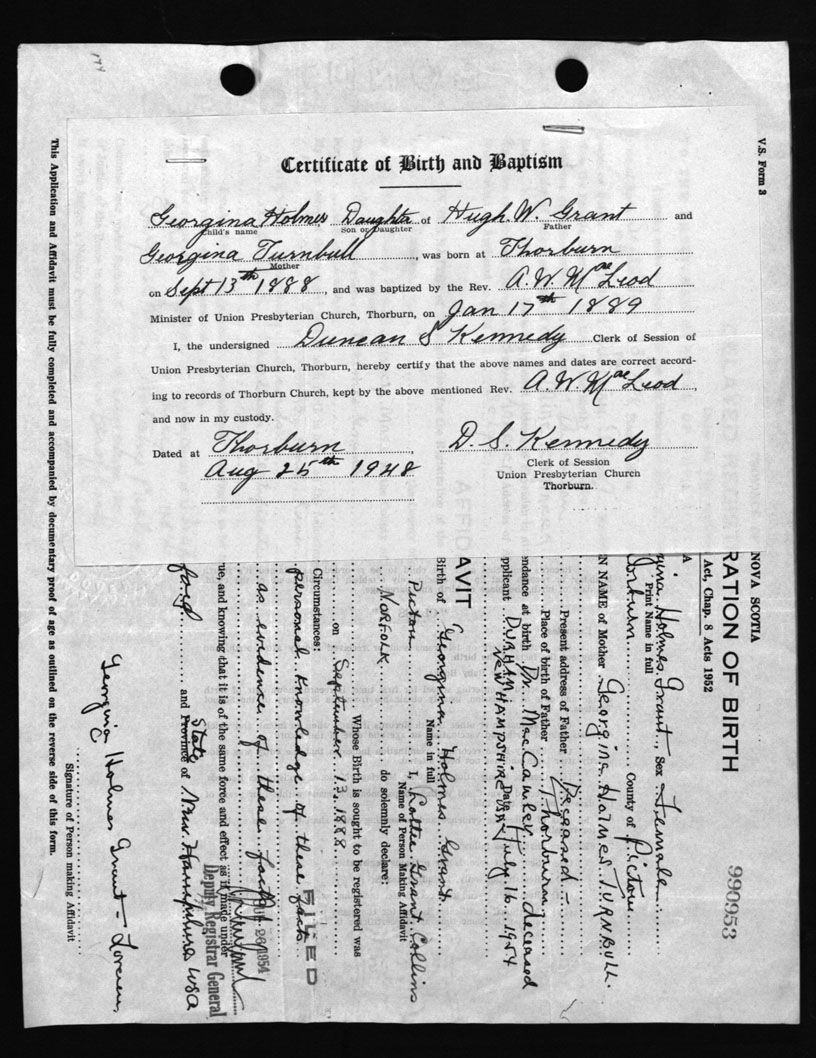 174
Certificate of Birth and Baptism
Georgina Holmes Daughter of Hugh W. Grant and
Child's name Son or Daughter Father
Georgina Turnbull, was born at Thorburn
Mother
on Sept 13th 1888, and was baptized by the Rev. A. W. MacLeod
Minister of Union Presbyterian Church, Thorburn, on Jan 17th 1889
I, the undersigned Duncan S Kennedy Clerk of Session of
Union Presbyterian Church, Thorburn, hereby certify that the above names and dates are correct accord-
ing to records of Thorburn Church, kept by the above mentioned Rev. A. W. MacLeod,
and now in my custody.
Dated at Thorburn
Aug 25th 1948
D. S. Kennedy
Clerk of Session
Union Presbyterian Church
Thorburn.
V.S. Form 3
NOVA SCOTIA
RATION OF BIRTH
Act, Chap. 8 Acts 1952
A
990953
gina Holmes Grant, Sex Female
Print Name in full
orburn County of Pictou
N NAME of Mother Georgina Holmes TURNBULL.
Present address of Father Deceased -
Place of birth of Father Thorburn
endance at birth Dr. MacCauley deceased
pplicant DURHAM Date July 16 1954
NEW HAMPSHIRE USA
AVIT
Birth of Georgina Holmes Grant
Name in full
Pictou I, Lottie Grant Collins
Name of Person Making Affidavit
NORFOLK do solemnly declare:
Whose Birth is sought to be registered was
on September 13, 1888
Circumstances:
personal knowledge of these facts
as evidence of these facts
FILED
JUL 26 1954
Deputy Registrar General
ue, and knowing that it is of the same force and effect as if made under
ford and Province of State New Hampshire USA
Georgina Holmes Grant -
Signature of Person making Affidavit
This Application and Affidavit must be fully completed and accompanied by documentary proof of age as outlined on the reverse side of this form.